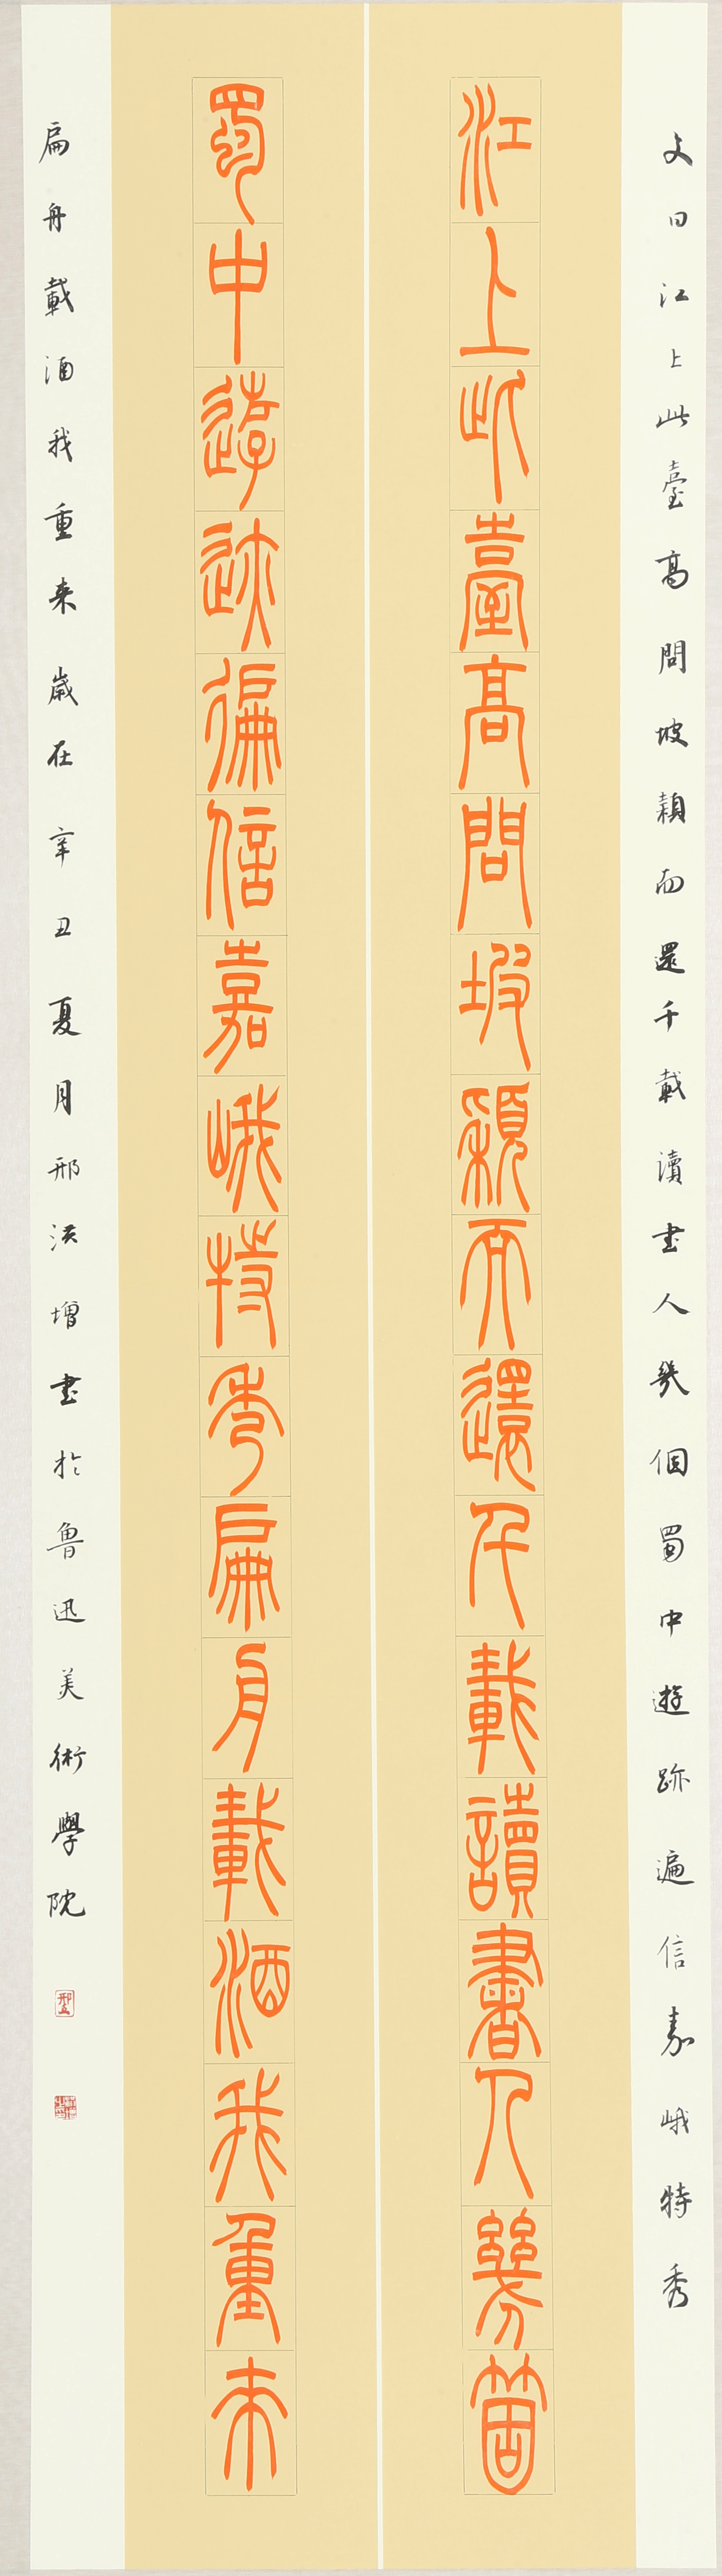 文曰江上此臺高問坡頴而還千載讀書人幾個蜀中遊跡遍信嘉峨特秀
江上此臺高問坡穎而還千載讀書人幾箇
蜀中遊迹徧信嘉峨特秀扁舟載酒我重来
扁舟載酒我重来歲在辛丑夏月邢洪增書於魯迅美術學院